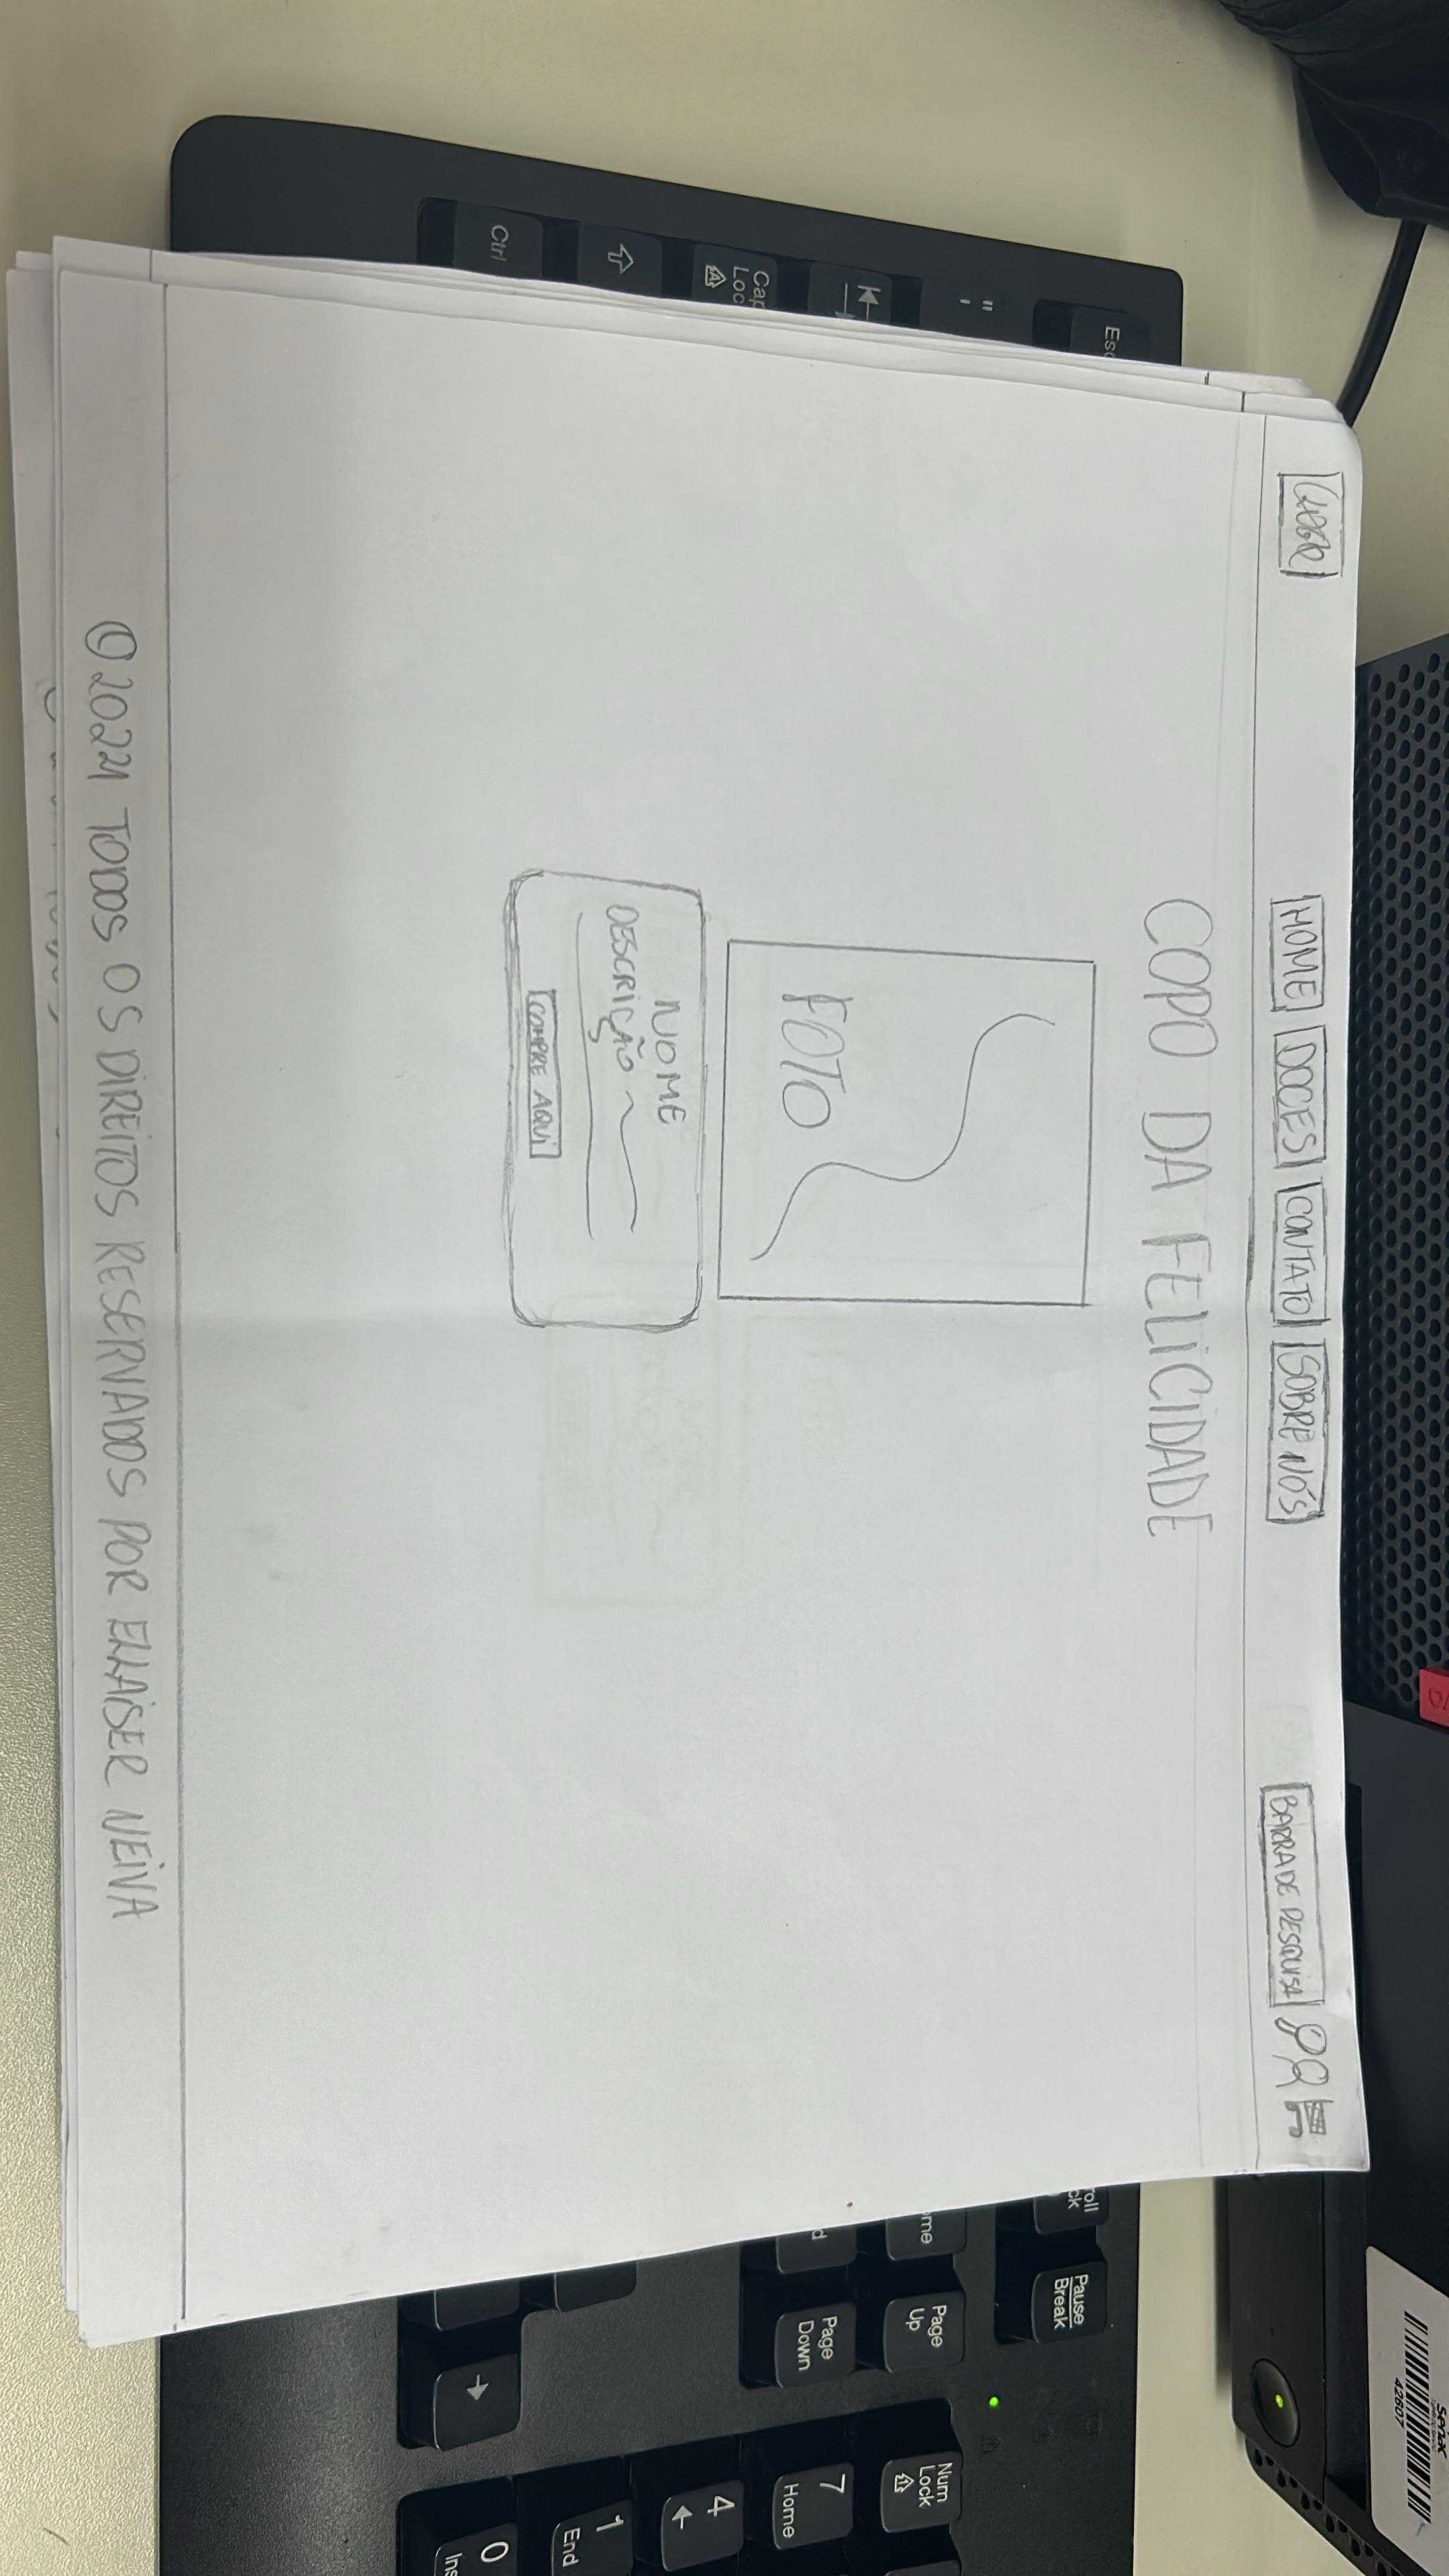 LOGO
HOME DOCES CONTATO SOBRE NÓS
BARRA DE PESQUISA
COPO DA FELICIDADE
FOTO
NOME
DESCRIÇÃO
COMPRE AQUI
TODOS OS DIREITOS RESERVADOS POR ELLAISER NEIVA
Ctrl
Cap
Loc
Esc
Pause
Break
Page
Up
Page
Down
Num
Lock
7
Home
4
1
End
0
Ins
42607